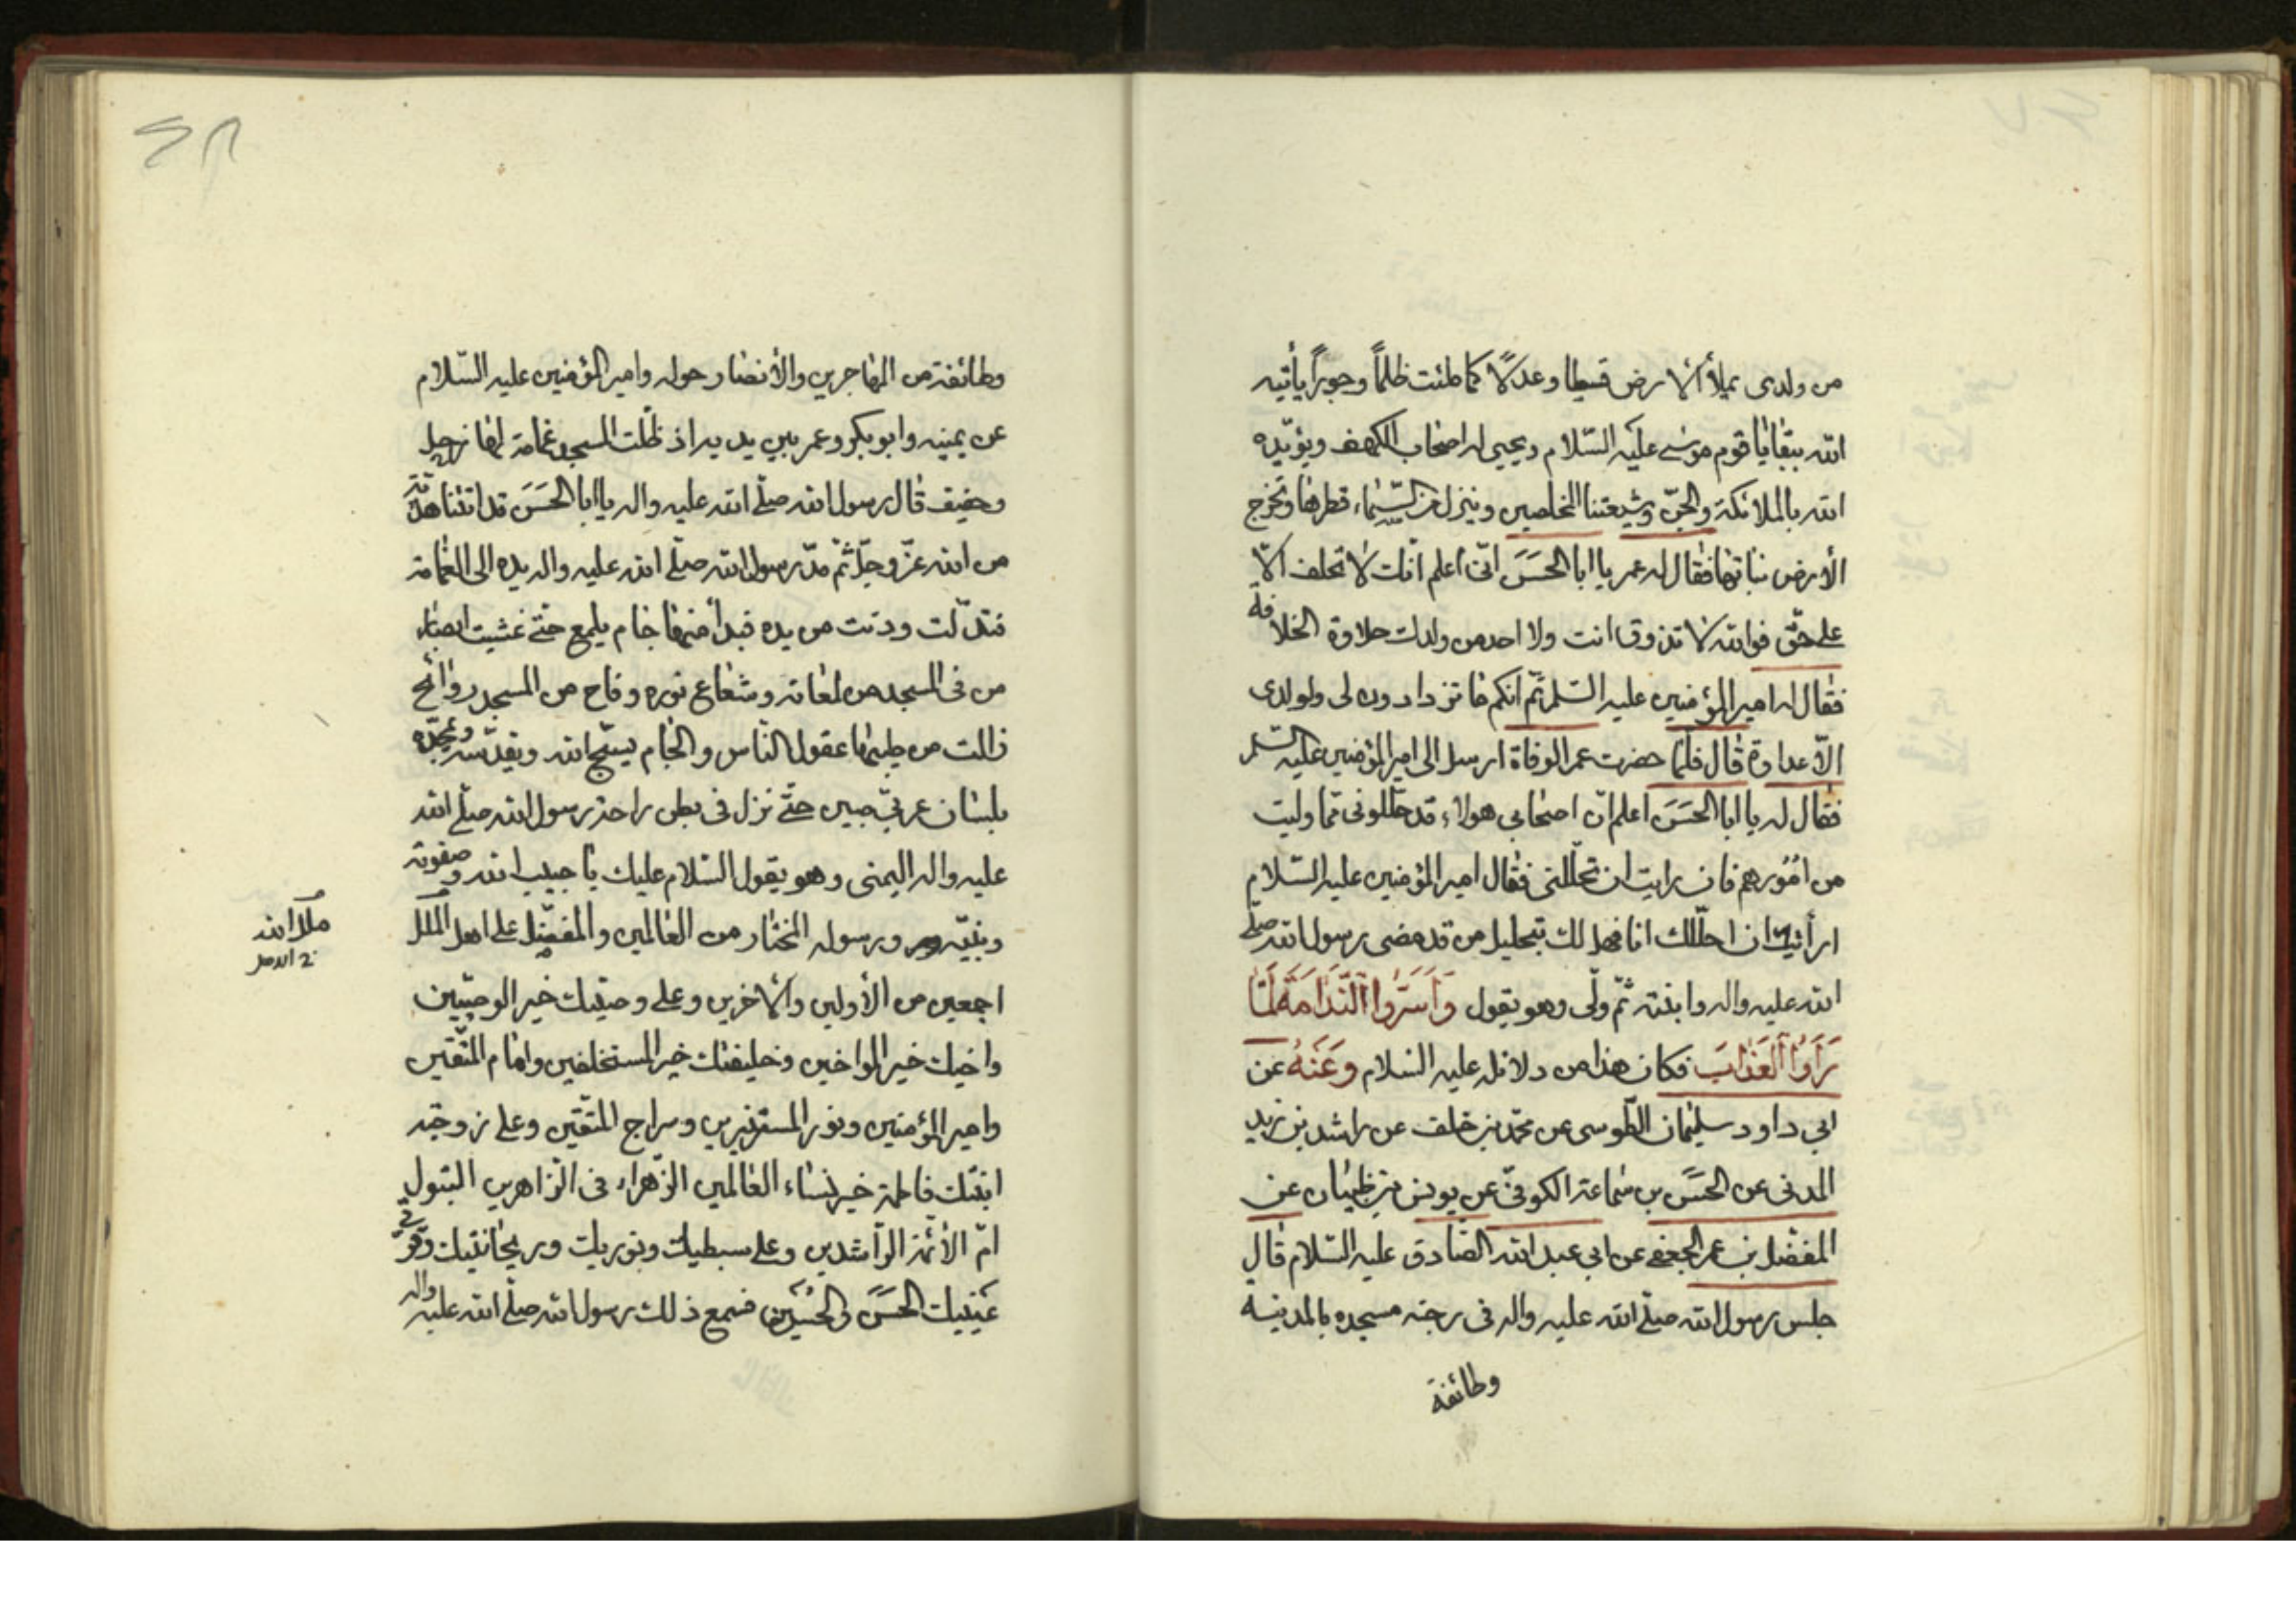 من ولدى يملأ الارض قسطا وعدلاً كما ملئت ظلماً وجوراً يأتيه
الله ببقايا قوم موسى عليه السّلام ويحيى له اصحاب الكهف ويؤيّده
الله بالملائكة والجنّ وشيعتنا المخلصين وينزل من السّماء قطرها وتخرج
الأرض نباتها فقال له عمر يا ابا الحَسَن انّى اعلم انّك لا تحلف الّا
على حقّ فوالله لا تذوق انت ولا احد من ولدك حلاوة الخلافة
فقال له امير المؤمنين عليه السّلم ثم انكم ما تزدادون لى ولولدى
الّا عداوة قال فلمّا حضرت عمر الوفاة ارسل الى امير المؤمنين عليه السّلم
فقال له يا ابا الحَسَن اعلم انّ اصحابى هولاء قد حلّلونى ممّا وليت
من امُورهم فان رايت ان تحلّلنى فقال امير المؤمنين عليه السّلام
ارأيتك ان احلّلك انا فهل لك بتحليل من قد مضى رسول الله صلّى
الله عليه واله وابنته ثمّ ولّى وهو يقول وَاَسَرُّوا النَّدَامَةَ لَمَّا
رَاَوُا الْعَذَابَ فكان هذا من دلائله عليه السّلام وَعَنْهُ عن
ابى داود سليمان الطّوسى عن محمّد بن خلف عن راشد بن زيد
المدنى عن الحَسَن بن سماعة الكوفىّ عن يونس بن ظبيان عن
المفضّل بن عمر الجعفى عن ابى عبد الله الصّادق عليه السّلام قال
جلس رسول الله صلّى الله عليه واله فى رحبة مسجده بالمدينة
وطائفة
وطائفة من المهاجرين والأنصار حوله وامير المؤمنين عليه السّلام
عن يمينه وابو بكر وعمر بين يديه اذ ظلّت المسجد غمامة لها زجل
وحفيف قال رسول الله صلّى الله عليه واله يا ابا الحَسَن قد اتتنا هديّة
من الله عزّ وجلّ ثمّ مدّ رسول الله صلّى الله عليه واله يده الى الغمامة
فتدلّت ودنت من يده فبدأ منها جام يلمع حتّى غشيت ابصار
من فى المسجد من لمعانه وشعاع نوره وفاح من المسجد روائح
زالت من طيبها عقول النّاس والجام يسبّح الله ويقدّسه ويمجّده
بلسان عربىّ مبين حتّى نزل فى بطن راحة رسول الله صلّى الله
عليه واله اليمنى وهو يقول السّلام عليك يا حبيب الله وصفوته
ونبيّه ورسوله المختار من العالمين والمفضّل على اهل الملل
اجمعين من الأولين والاخرين وعلى وصيّك خير الوصيّين
واخيك خير المواخين وخليفتك خير المستخلفين وامام المتّقين
وامير المؤمنين ونور المستنيرين وسراج المتّقين وعلى زوجته
ابنتك فاطمة خير نساء العالمين الزّهراء فى الزّاهرين البتول
امّ الأئمّة الرّاشدين وعلى سبطيك ونوريك وريحانتيك وقرّتى
عَينيك الحَسَن والحُسَين فسمع ذلك رسول الله صلّى الله عليه واله